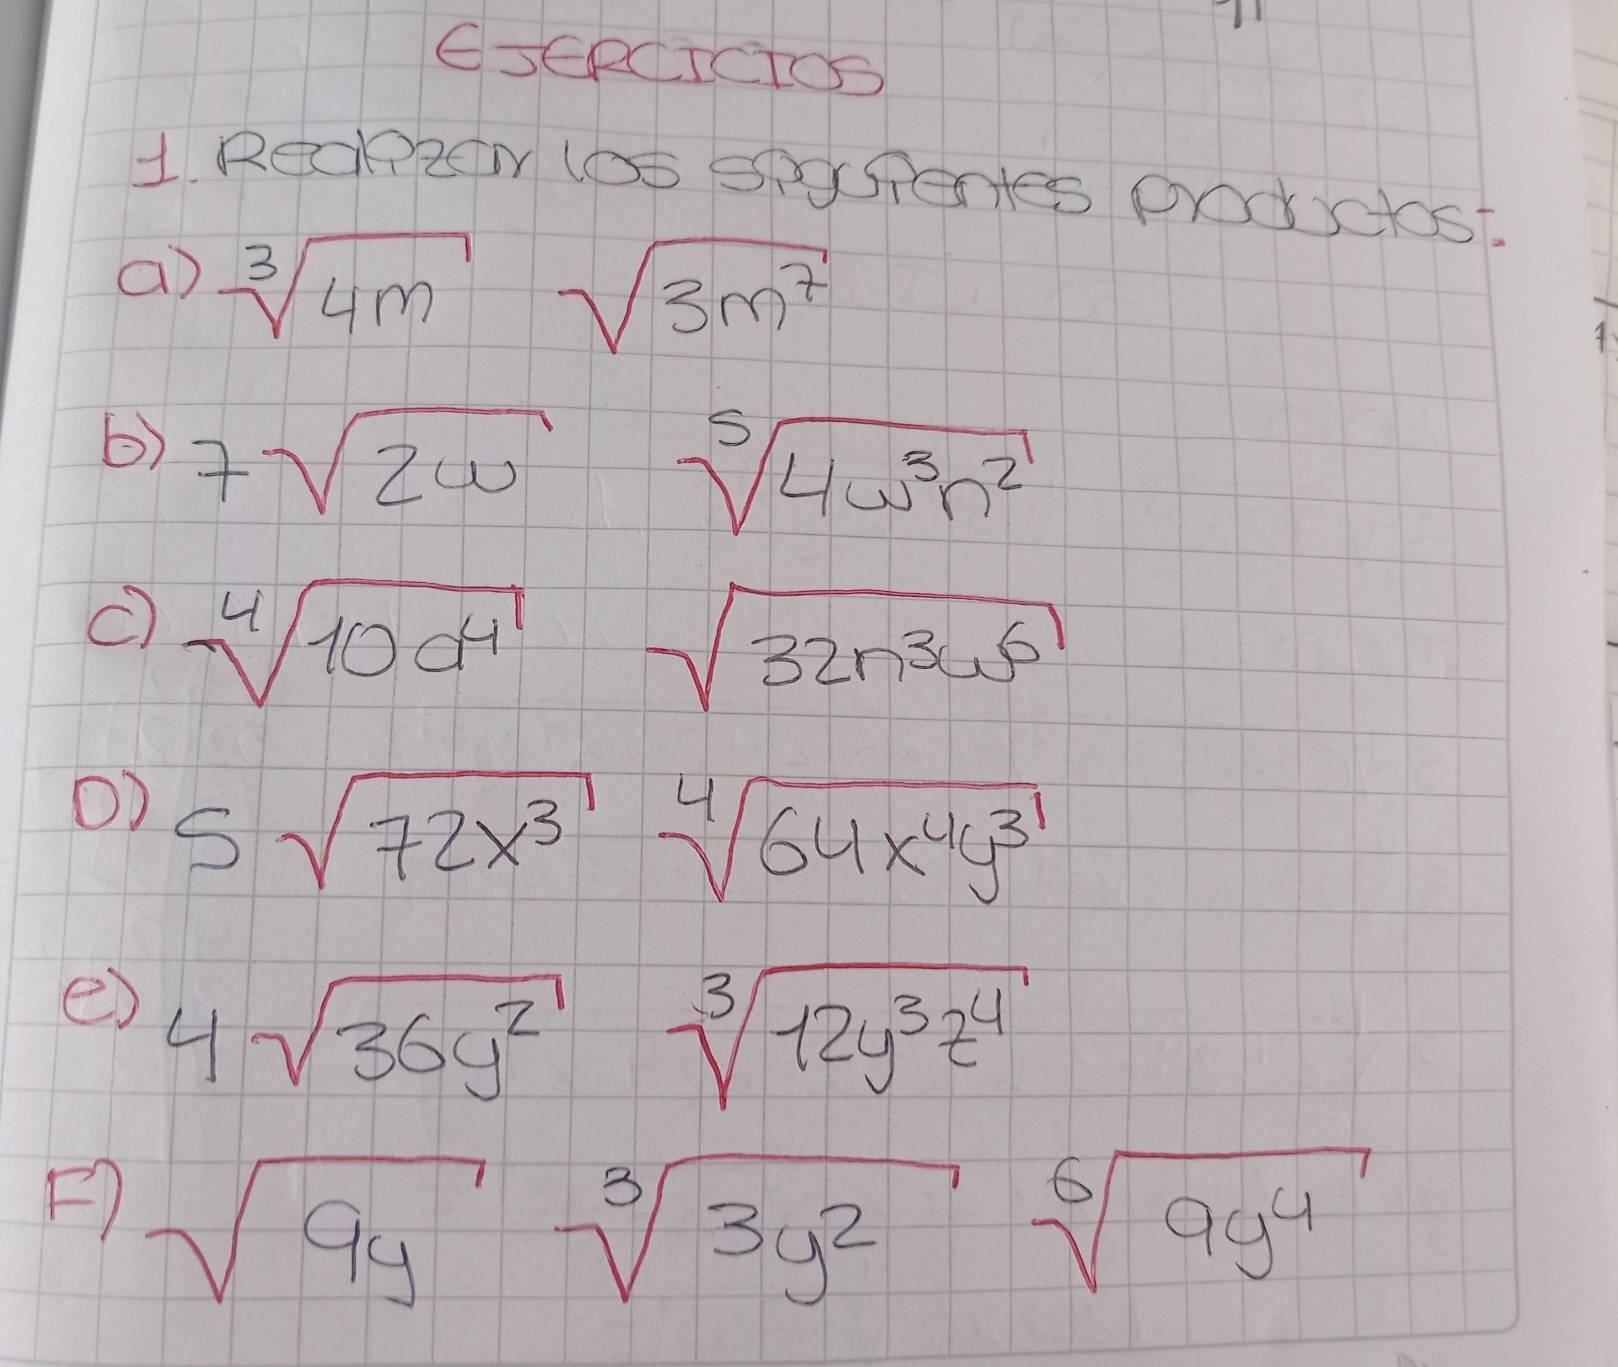 EJERCICIOS
1. Realizar los siguientes productos:
a) ∛4m √3m⁷
b) 7√2w ⁵√4w³n²
c) ⁴√10d⁴ √32n³w⁶
D) 5√72x³ ⁴√64x⁴y³
e) 4√36y² ∛12y³z⁴
F) √9y ∛3y² ⁶√9y⁴